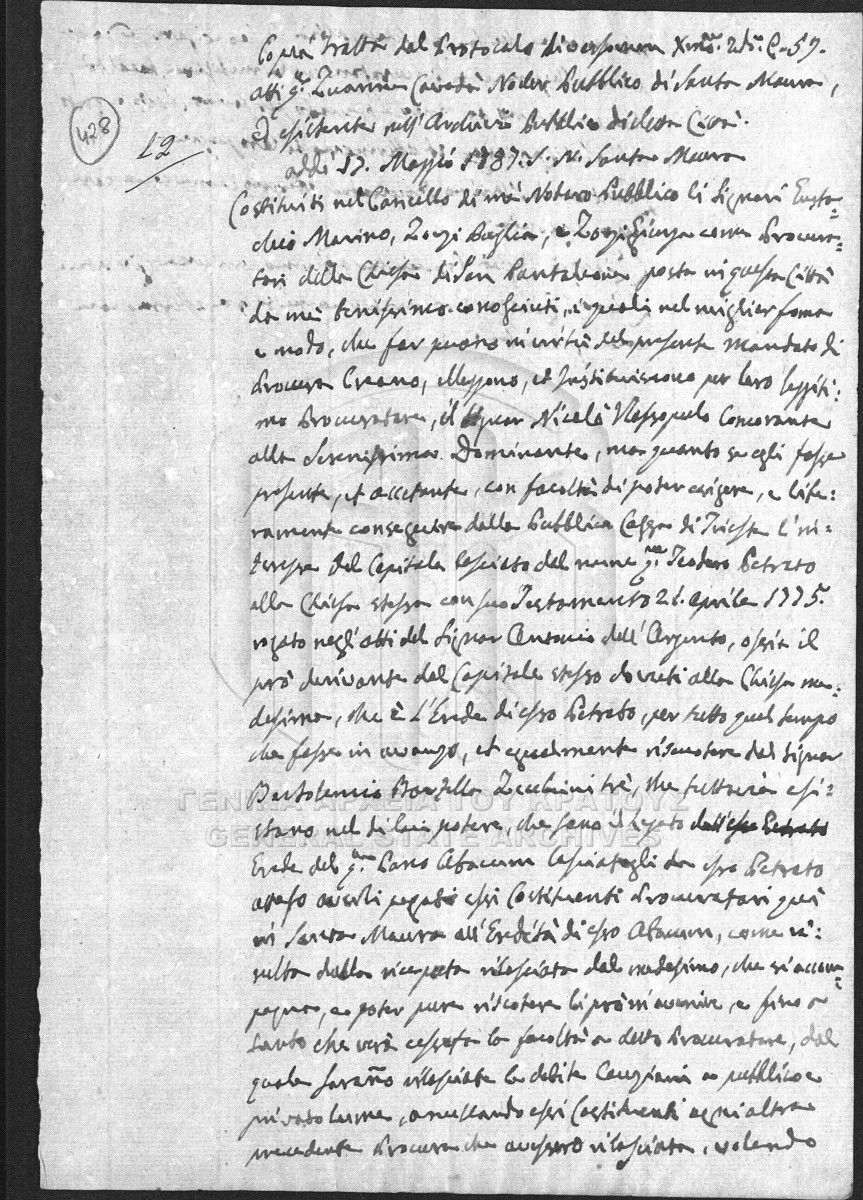 Copia tratta dal Protocolo diversorum
atti q.m Zuanne Cavada Nodar Pubblico di Santa Maura,
ed esistente nell'Archivio Pubblico di detta Città.
428
12
addi 17. Maggio 1787. S. N. Santa Maura
Costituiti nel Cancello di me Nodaro Pubblico li Signori Eusta=
chio Marino, Zorzi e Zorzi come Procura=
tori della Chiesa di San Pantaleone posta in questa Città
da me benissimo conosciuti, i quali nel miglior forma
e modo, che far puono in virtù del presente Mandato di
Procura Creano, elleggono, et Instituiscono per loro leggiti=
mo Procuratore, il Signor Nicolò Vlassopulo Commorante
alla Serenissima Dominante, ma quanto se egli fosse
presente, et accetante, con facoltà di poter esigere, e libe=
ramente conseguire dalla Pubblica Cassa di Trieste l'in=
teresse del Capitale lasciato dal q.m Teodoro Petrato
alla Chiesa stessa con suo Testamento 21. Aprile 1775.
rogato negl'atti del Signor Antonio dell'Argento, o sia il
prò derivante dal Capitale stesso dovuti alla Chiesa me=
desima, che è l'Erede di esso Petrato, per tutto quel tempo
che fosse in avanzo, et egualmente riscuotere dal Signor
Bartolomeo Zecchini trè, che tuttavia esi=
stano nel di lui potere, che sono il legato dall'esso Petrato
Erede del q.m Pano Abacum lasciatogli da esso Petrato
atteso averli pagati essi Costituenti Procuratori quì
in Santa Maura all'Eredità di esso Abacum, come ri=
sulta dalla riceputa rilasciata dal medesimo, che si accom=
pagna, e poter pure riscotere li prò in avenire, e fino a
tanto che verà cessata la facoltà a detto Procuratore, dal
quale saranno rilasciate le debite Cauzioni a pubblico e
privato lume, annullando essi Costituenti ogni altra
precedente Procura che avessero rilasciata, volendo
ΓΕΝΙΚΑ ΑΡΧΕΙΑ ΤΟΥ ΚΡΑΤΟΥΣ
GENERAL STATE ARCHIVES